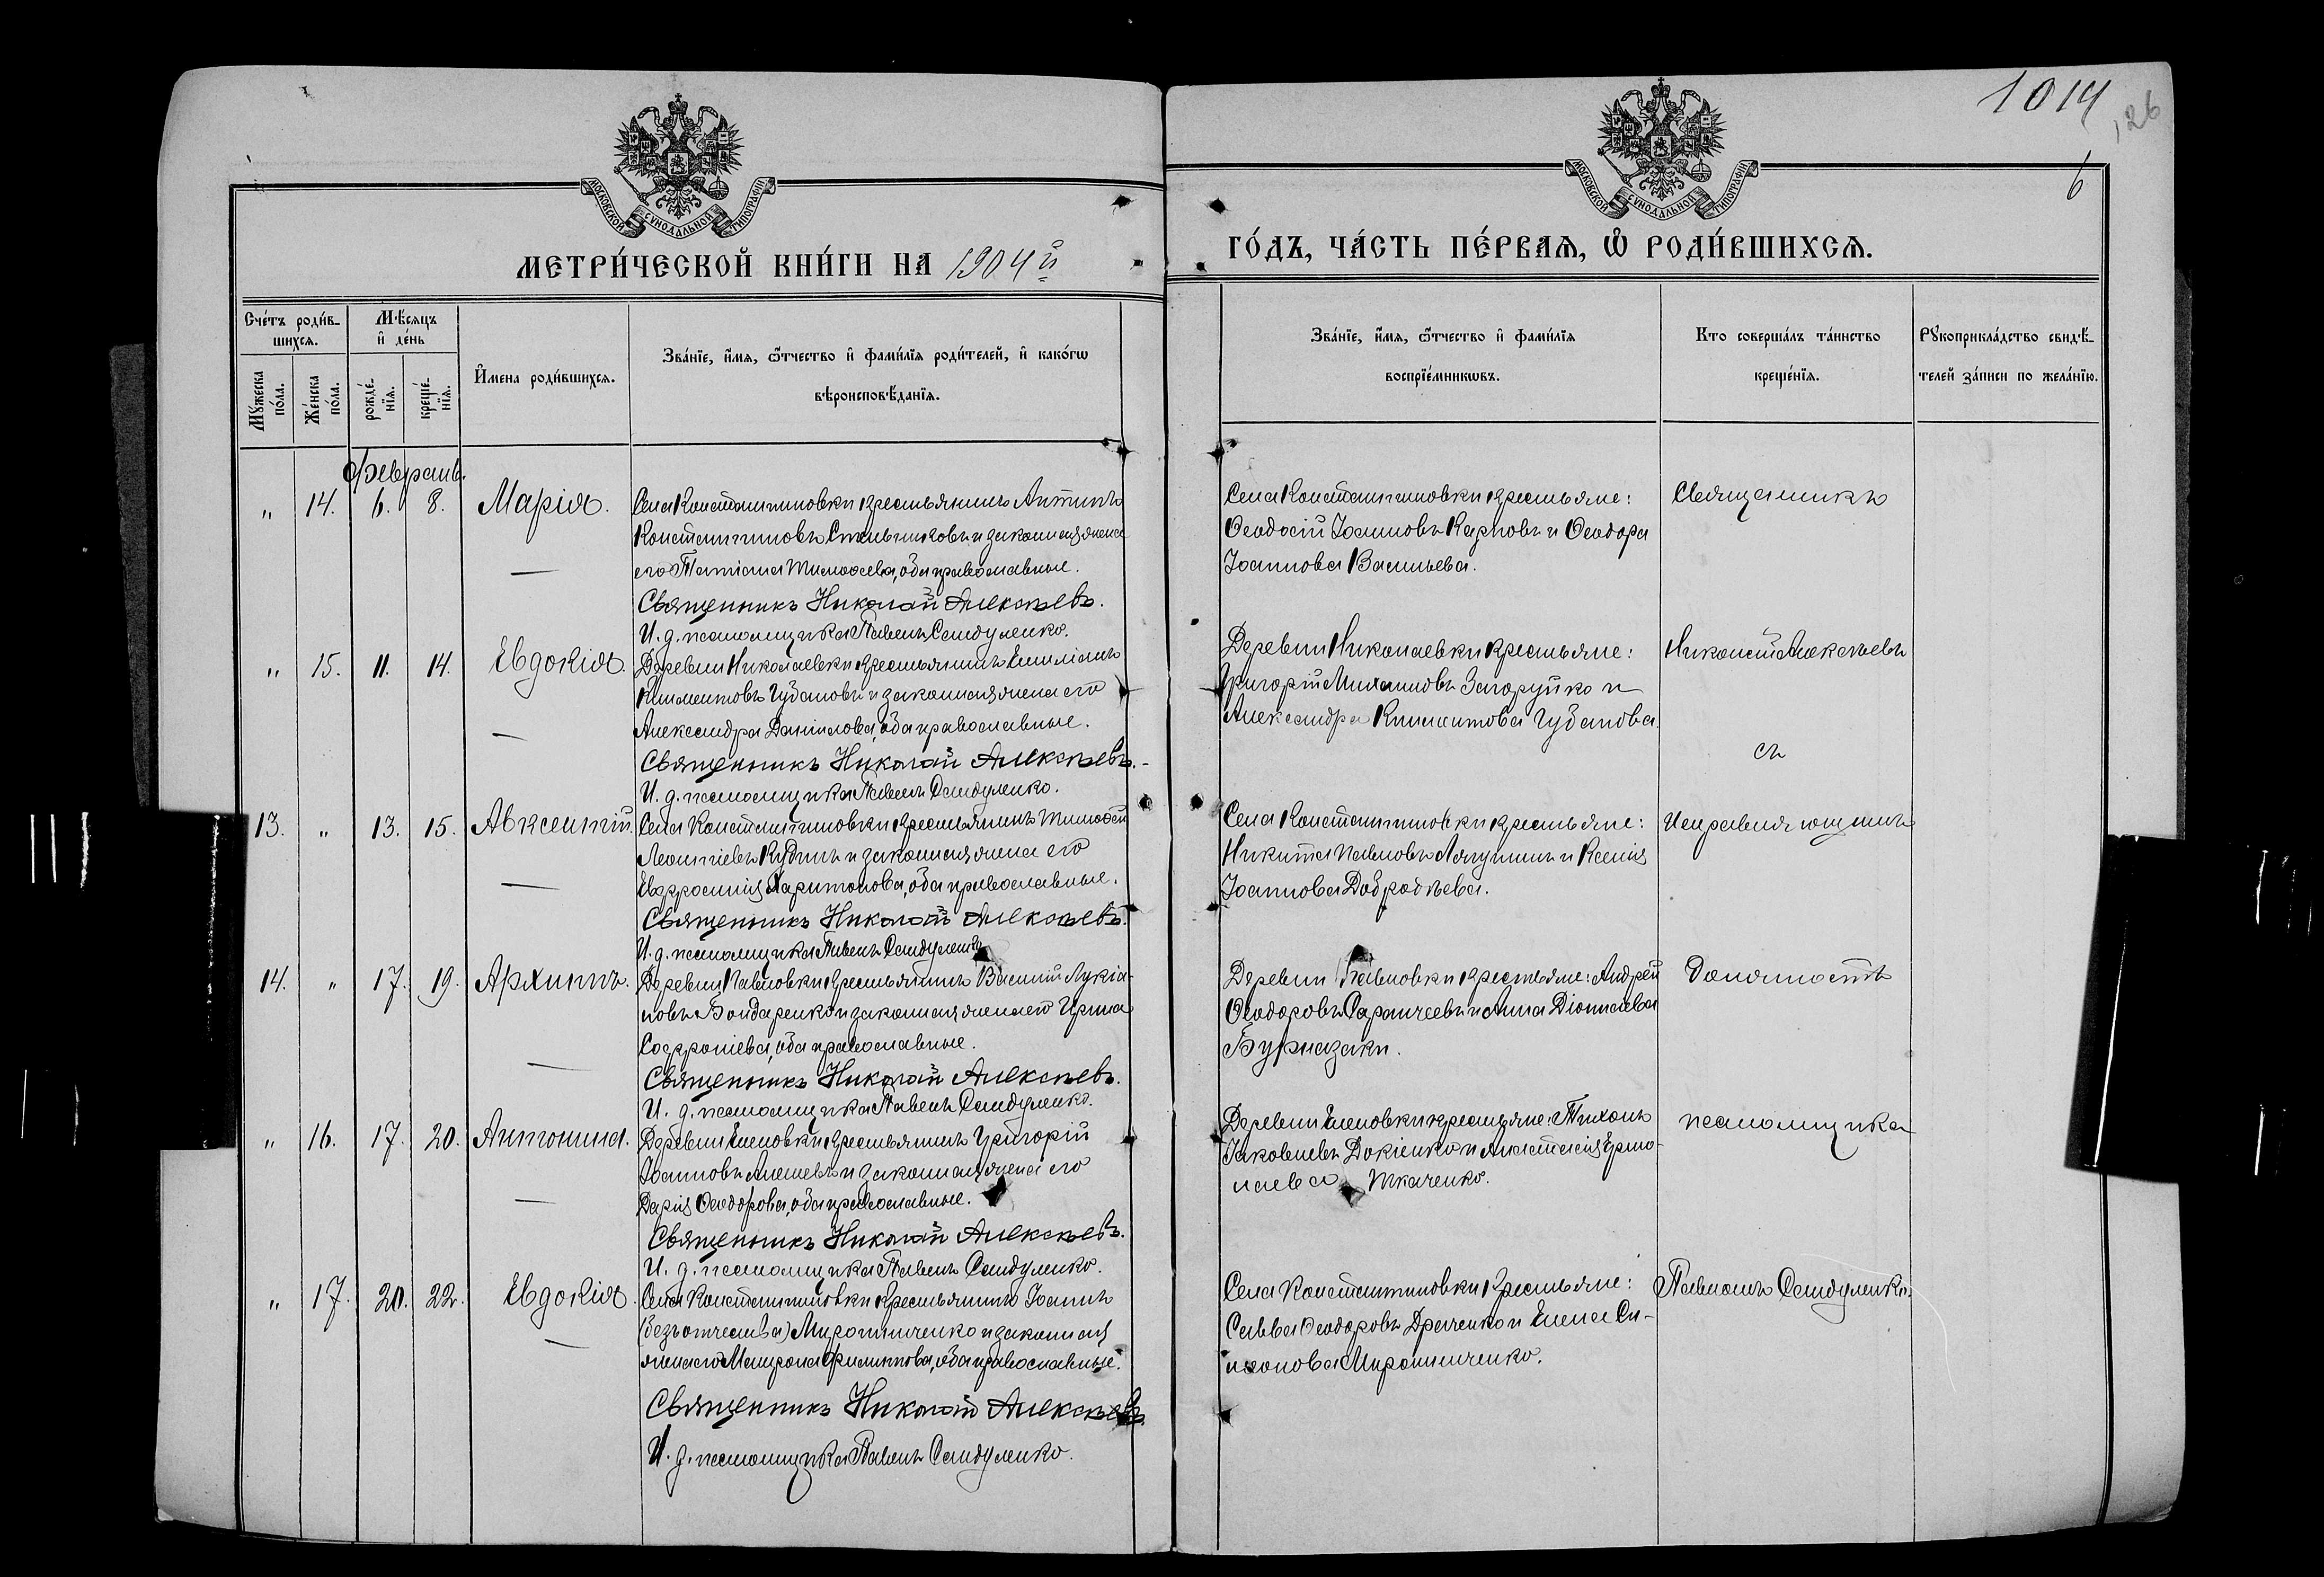 1014
126
6
МОСКОВСКОЙ СѴНОДАЛЬНОЙ ТИПОГРАФІИ
МОСКОВСКОЙ СѴНОДАЛЬНОЙ ТИПОГРАФІИ
МЕТРИ́ЧЕСКОЙ КНИ́ГИ НА 1904й
ГО́ДЪ, ЧА́СТЬ ПЕ́РВАѦ, Ѽ РОДИ́ВШИХСѦ.
Сче́тъ роди́в-
шихсѧ.
Мꙋ́жеска по́ла.
Же́нска по́ла.
Мѣ́сѧцъ
и҆ де́нь
рожде́-нїѧ.
креще́-нїѧ.
И҆мена роди́вшихсѧ.
Зва́нїе, и҆́мѧ, ѻ҆́тчество и҆ фами́лїѧ роди́телей, и҆ како́гѡ
вѣроисповѣ́данїѧ.
Зва́нїе, и҆́мѧ, ѻ҆́тчество и҆ фами́лїѧ
воспрїе́мникѡвъ.
Кто соверша́лъ та́инство
креще́нїѧ.
Рꙋкоприкла́дство свидѣ́-
телей за́писи по жела́нїю.
Февраль.
" 14. 6. 8. Марія. Села Константиновки крестьянинъ Антипъ
Константиновъ Стельниковъ и законная жена
его Татіана Тимоѳеева, оба православные.
Священникъ Николай Алексѣевъ.
И. д. псаломщика Павелъ Сандуленко.
Села Константиновки крестьяне:
Ѳеодосій Іоанновъ Карповъ и Ѳеодора
Іоаннова Васильева.
Священникъ
" 15. 11. 14. Евдокія. Деревни Николаевки крестьянинъ Емиліанъ
Климентовъ Губановъ и законная жена его
Александра Даніилова, оба православные.
Священникъ Николай Алексѣевъ.
И. д. псаломщика Павелъ Сандуленко.
Деревни Николаевки крестьяне:
Григорій Михаиловъ Загоруйко и
Александра Климентова Губанова.
Николай Алексѣевъ
съ
13. " 13. 15. Авксентій. Села Константиновки крестьянинъ Тимоѳей
Леонтіевъ Кудинъ и законная жена его
Евфросинія Харитонова, оба православные.
Священникъ Николай Алексѣевъ.
И. д. псаломщика Павелъ Сандуленко
Села Константиновки крестьяне:
Никита Павловъ Лягушинъ и Ксенія
Іоаннова Добродѣева.
Исправляющимъ
14. " 17. 19. Архиппъ. Деревни Павловки крестьянинъ Василій Лукіа-
новъ Бондаренко и законная жена его Ирина
Софроніева, оба православные.
Священникъ Николай Алексѣевъ.
И. д. псаломщика Павелъ Сандуленко.
Деревни Павловки крестьяне: Андрей
Ѳеодоровъ Саранчевъ и Анна Діонисіева
Бурназаки.
должность
" 16. 17. 20. Антонина. Деревни Еленовки крестьянинъ Григорій
Іоанновъ Алешевъ и законная жена его
Дарія Ѳеодорова, оба православные.
Священникъ Николай Алексѣевъ.
И. д. псаломщика Павелъ Сандуленко.
Деревни Еленовки крестьяне: Тихонъ
Іаковлевъ Докіенко и Анастасія Ермо-
лаева Ткаченко.
псаломщика
" 17. 20. 22. Евдокія. Села Константиновки крестьянинъ Іоаннъ
(безъ отчества) Мирошниченко и законная
жена его Матрона Филиппова, оба православные.
Священникъ Николай Алексѣевъ
И. д. псаломщика Павелъ Сандуленко.
Села Константиновки крестьяне:
Савва Ѳеодоровъ Драченко и Елена
Мирошниченко.
Павломъ Сандуленко.